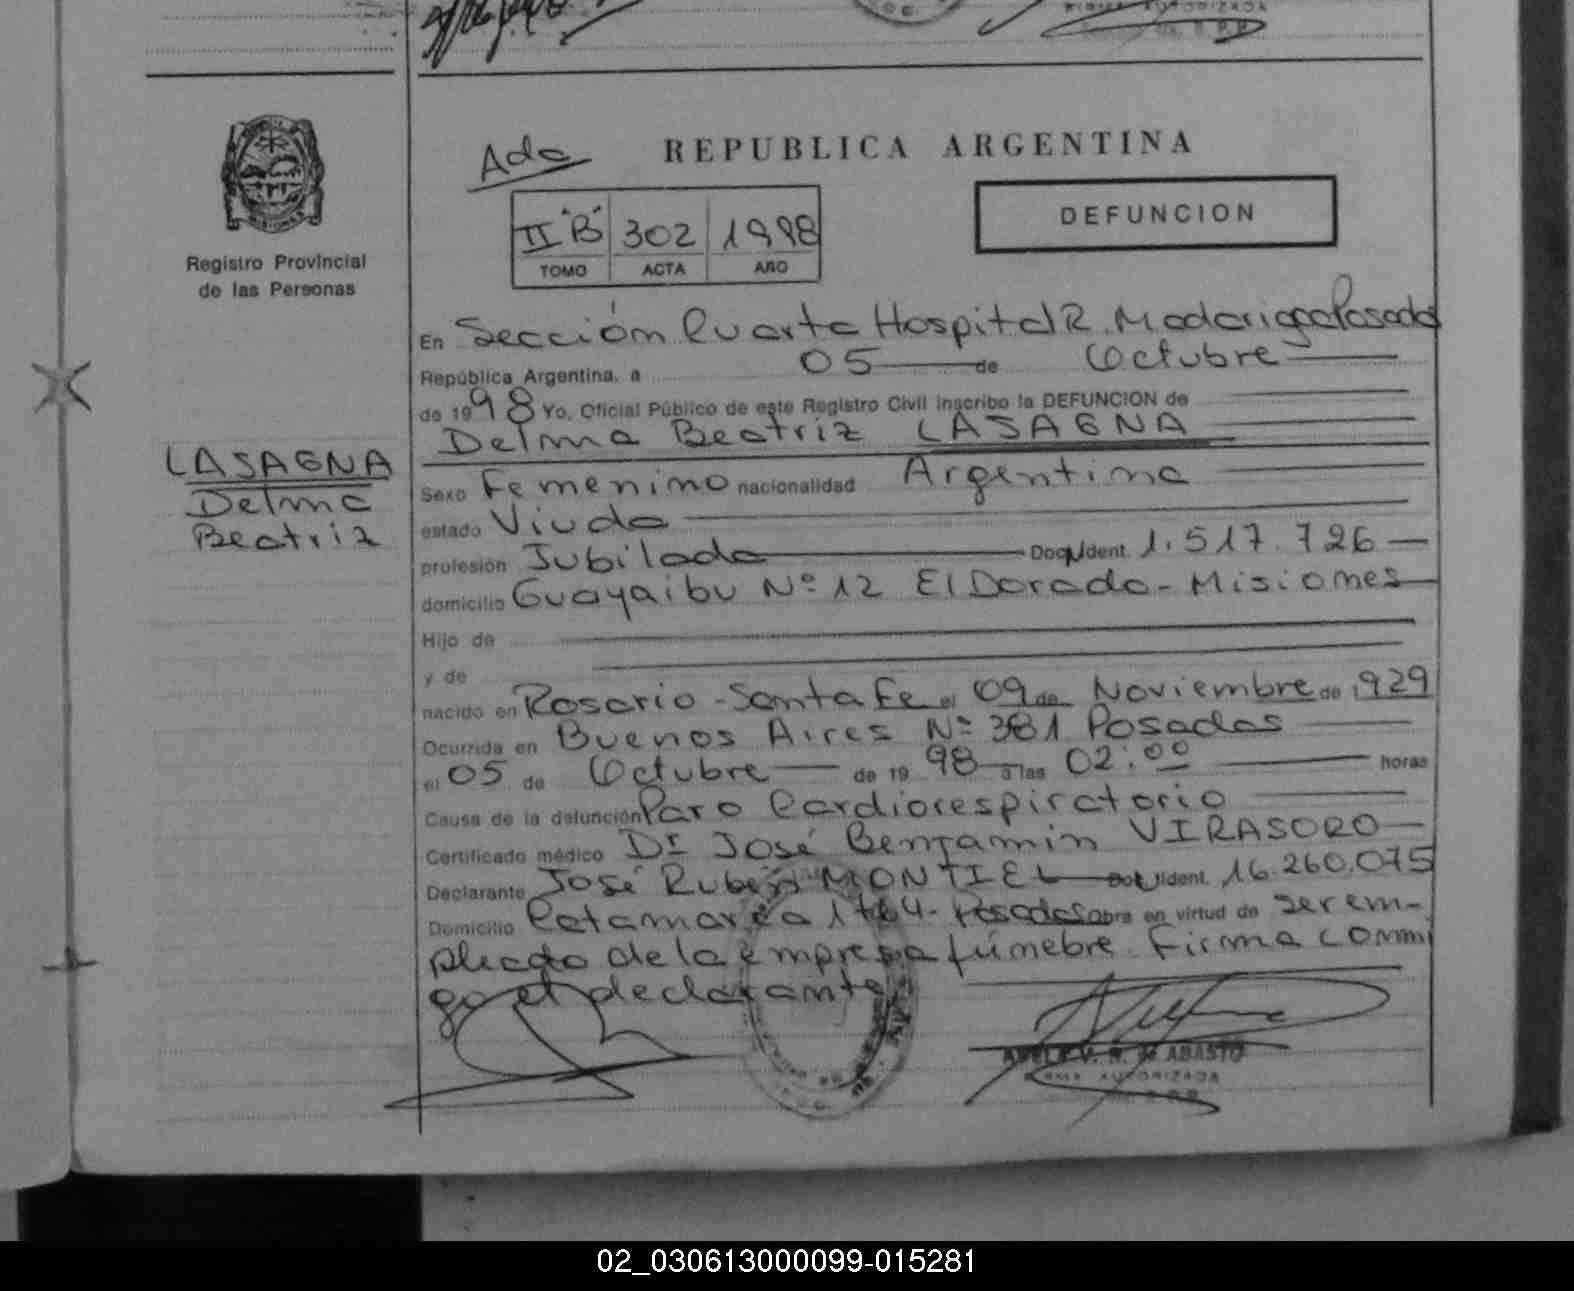 FIRMA AUTORIZADA
Ada
REPUBLICA ARGENTINA
II "B" 302 1998
TOMO ACTA AÑO
DEFUNCION
Registro Provincial
de las Personas
En Sección Cuarta Hospital R. Madariaga Posadas
República Argentina, a 05 de Octubre
de 1998 Yo, Oficial Público de este Registro Civil inscribo la DEFUNCION de
Delma Beatriz LASAGNA
LASAGNA
Delma
Beatriz
Sexo Femenino nacionalidad Argentina
estado Viuda
profesión Jubilada Doc. Ident. 1.517.726
domicilio Guayaibu Nº 12 El Dorado - Misiones
Hijo de
y de
nacido en Rosario - Santa Fe el 09 de Noviembre de 1929
Ocurrida en Buenos Aires Nº 381 Posadas
el 05 de Octubre de 1998 a las 02:00 horas
Causa de la defunción Paro Cardiorespiratorio
Certificado médico Dr José Benjamin VIRASORO
Declarante José Rubén MONTIEL Ident. 16.260.075
Domicilio Catamarca Posadas obra en virtud de ser em-
pleado de la empresa fúnebre. Firma conmi
go el declarante
M. ABASTO
FIRMA AUTORIZADA
02_030613000099-015281